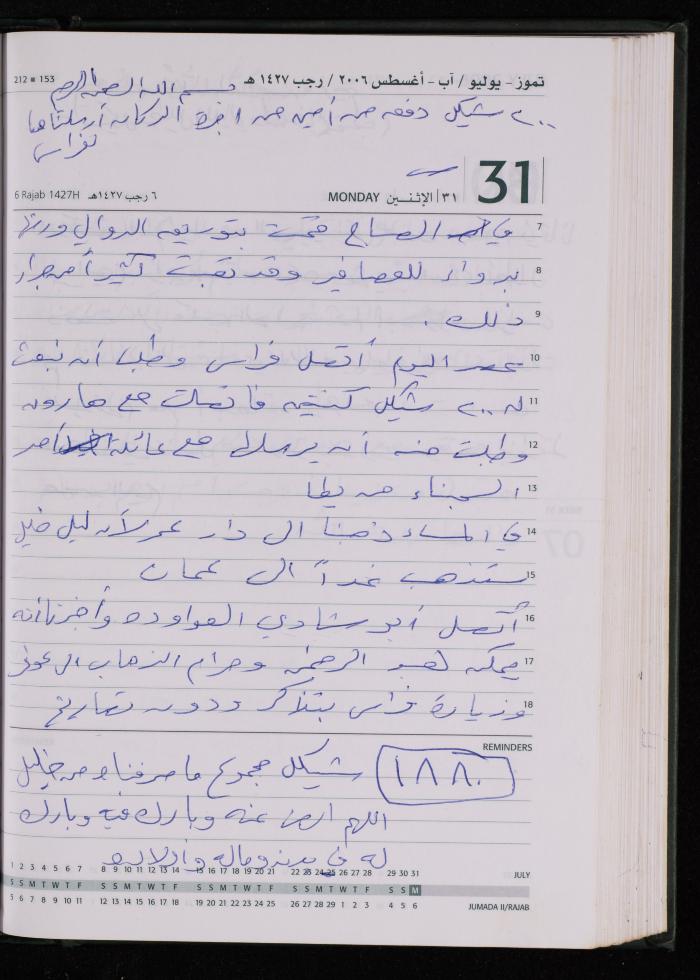 212 ■ 153
تموز - يوليو / آب - أغسطس ٢٠٠٦ / رجب ١٤٢٧ هـ
بسم الله الرحمن الرحيم
٢٠٠ شيكل دفعه من أمين من اجرة الدكان أرسلناها
لفراس
31
MONDAY الإثنين ٣١
6 Rajab 1427H ٦ رجب ١٤٢٧هـ
7 في الصباح قمت بتوسيع الدوالي ورشها
8 للعصافير وقد تعبت كثيراً من جراء
9 ذلك .
10 عصر اليوم أتصل فراس وطلب أن نبعث
11 له ٢٠٠ شيكل كنتيه فاتصلت مع هارون
12 وطلبت منه أن يرسلها مع عائلة أحد
13 السجناء من يطا
14 في المساء ذهبنا الى دار عمر لأن ليلى
15 ستذهب غداً الى عمان
16 أتصل أبو شادي العواوده وأخبرنا أنه
17 يمكنه هو ومرام الذهاب الى
18 وزيارة فراس بتذاكر ودون تصاريح
REMINDERS
١٨٨٠ شيكل مجموع ما صرفناه من خليل
اللهم ارض عنه وبارك فيه وبارك
له في بدنه وماله وأولاده
1 2 3 4 5 6 7 8 9 10 11 12 13 14 15 16 17 18 19 20 21 22 23 24 25 26 27 28 29 30 31 JULY
S S M T W T F S S M T W T F S S M T W T F S S M T W T F S S M
5 6 7 8 9 10 11 12 13 14 15 16 17 18 19 20 21 22 23 24 25 26 27 28 29 1 2 3 4 5 6 JUMADA II/RAJAB